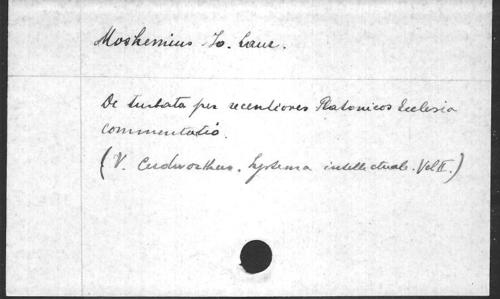 Moshemius Jo. Laur.
De turbata per recentiores Platonicos Ecclesia
commentatio.
(V. Cudworthus. Systema intellectuale. Vol II.)